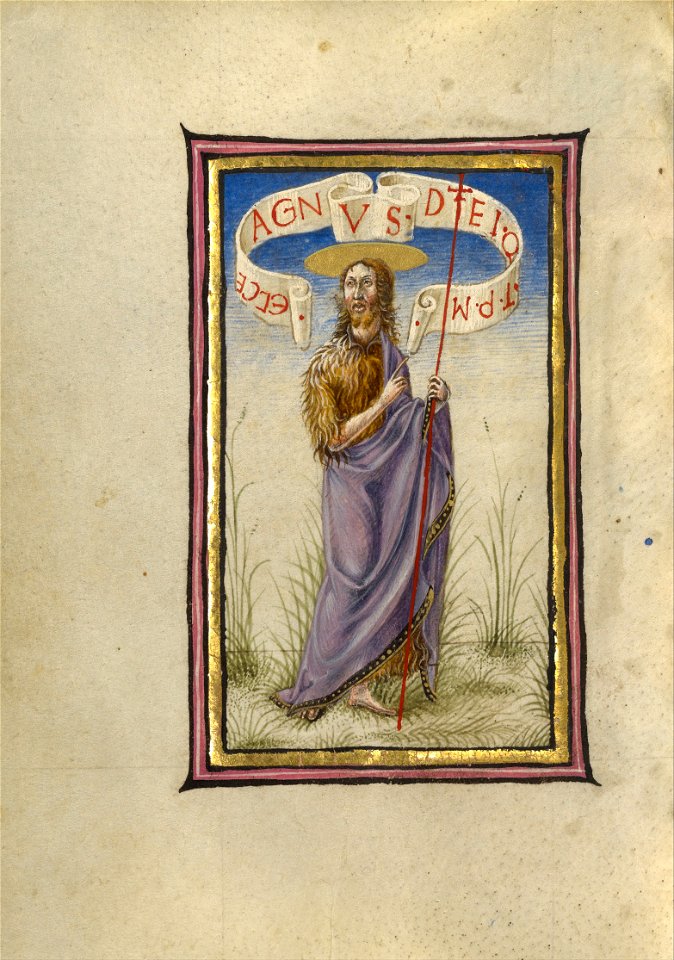 ·ECCE AGNVS·DEI·Q·T·P·M·